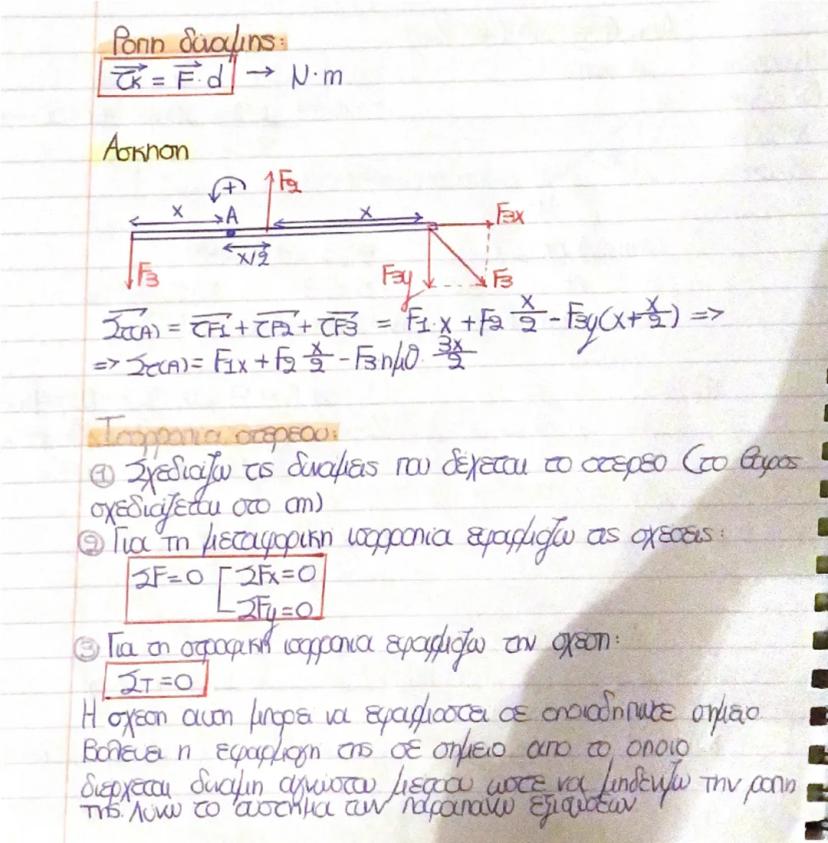 Ροπη δύναμης:
τκ = F · d → N·m
Ασκηση
+ F2
x A x F3x
x/2
F3 F3y F3
Στ(A) = τF1 + τF2 + τF3 = F1·x + F2 x/2 - F3y(x + x/2) =>
=> Στ(A) = F1x + F2 x/2 - F3ημθ · 3x/2
Ισορροπια στερεου:
① Σχεδιάζω τις δυναμεις που δέχεται το στερεο (το βαρος
σχεδιάζεται στο cm)
② Για τη μεταφορική ισορροπια εφαρμοζω τις σχεσεις:
ΣF=0 ΣFx=0
ΣFy=0
③ Για τη στροφική ισορροπια εφαρμοζω την σχεση:
Στ=0
Η σχεση αυτη μπορει να εφαρμοστει σε οποιοδηποτε σημειο
Βολευει η εφαρμογη της σε σημειο απο το οποιο
διερχεται δυναμη αγνωστου μετρου ωστε να μηδενιζω την ροπη
της. Λυνω το συστημα των παραπανω εξισωσεων